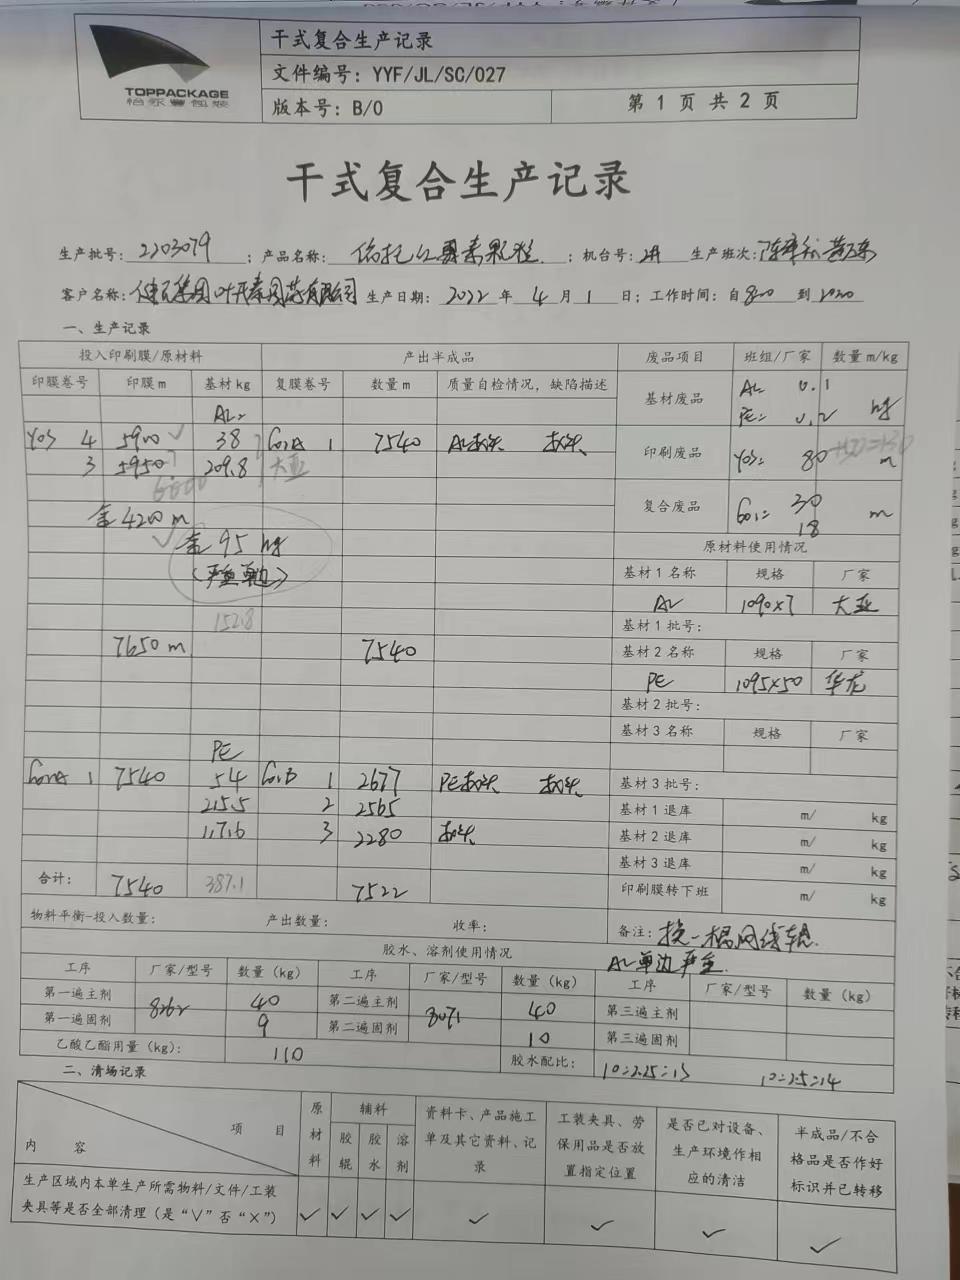 TOPPACKAGE
怡永豐包裝
干式复合生产记录
文件编号: YYF/JL/SC/027
版本号: B/0
第 1 页 共 2 页
干式复合生产记录
生产批号: 2203079 ; 产品名称: ; 机台号: 2# 生产班次:
客户名称: 生产日期: 2022 年 4 月 1 日; 工作时间: 自 800 到 2020
一、生产记录
投入印刷膜/原材料 产出半成品 废品项目 班组/厂家 数量 m/kg
印膜卷号 印膜 m 基材 kg 复膜卷号 数量 m 质量自检情况, 缺陷描述
AL:
基材废品 AL 0.1
PE: 0.2 kg
4 5900 38 1 7540 AL接头 接头
3 5950 209.8 大亚
6000
印刷废品 80 m
余 4200 m
复合废品 30 m
18
余 95 kg
(严重单边)
原材料使用情况
基材 1 名称 规格 厂家
AL 1090×7 大亚
152.8
基材 1 批号:
7650 m 7540
基材 2 名称 规格 厂家
PE 1095×50 华龙
基材 2 批号:
基材 3 名称 规格 厂家
PE
1 7540 54 1 2677 PE接头 接头
基材 3 批号:
215.5 2 2565
基材 1 退库 m/ kg
117.6 3 2280 接头
基材 2 退库 m/ kg
基材 3 退库 m/ kg
合计: 7540 387.1 7522
印刷膜转下班 m/ kg
物料平衡-投入数量: 产出数量: 收率:
备注: 换一根网线辊.
AL单边严重.
胶水、溶剂使用情况
工序 厂家/型号 数量 (kg) 工序 厂家/型号 数量 (kg) 工序 厂家/型号 数量 (kg)
第一遍主剂 8262 40 第二遍主剂 3071 40 第三遍主剂
第一遍固剂 9 第二遍固剂 10 第三遍固剂
乙酸乙酯用量 (kg): 110 胶水配比: 10:2.25:13 10:2.5:14
二、清场记录
项 目
内 容
原材料
辅料
胶辊
胶水
溶剂
资料卡、产品施工单及其它资料、记录
工装夹具、劳保用品是否放置指定位置
是否已对设备、生产环境作相应的清洁
半成品/不合格品是否作好标识并已转移
生产区域内本单生产所需物料/文件/工装
夹具等是否全部清理 (是“√”否“×”) ✓ ✓ ✓ ✓ ✓ ✓ ✓ ✓